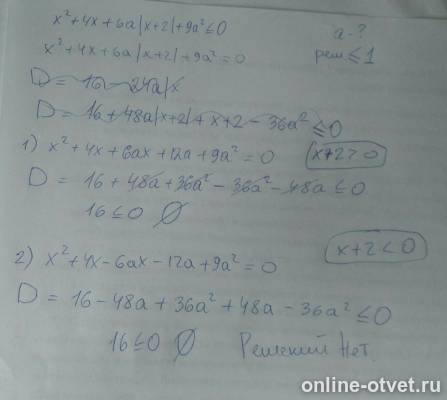 x²+4x+6a|x+2|+9a²≤0
a-?
x²+4x+6a|x+2|+9a²=0
реш≤1
D=16-24a|x
D=16+48a|x+2|+x+2-36a²≤0
1) x²+4x+6ax+12a+9a²=0
x+2>0
D=16+48a+36a²-36a²-48a≤0
16≤0 ∅
x+2<0
2) x²+4x-6ax-12a+9a²=0
D=16-48a+36a²+48a-36a²≤0
16≤0 ∅ Решений Нет.
online-otvet.ru